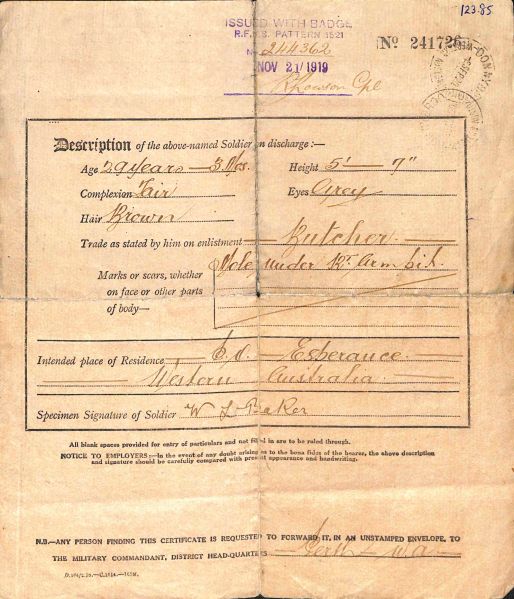 123.85
ISSUED WITH BADGE
No 244362
NOV 21/1919
Nº 241726
Cpl
Description of the above-named Soldier on discharge :—
Age 29 years — 3 Mos. Height 5' — 7"
Complexion Fair Eyes Grey
Hair Brown
Trade as stated by him on enlistment Butcher
Marks or scars, whether
on face or other parts
of body—
Mole under Rt Arm pit.
Intended place of Residence P.O. Esperance
Western Australia
Specimen Signature of Soldier W L Baker
All blank spaces provided for entry of particulars and not filled in are to be ruled through.
NOTICE TO EMPLOYERS:—In the event of any doubt arising as to the bona fides of the bearer, the above description
and signature should be carefully compared with present appearance and handwriting.
N.B.—ANY PERSON FINDING THIS CERTIFICATE IS REQUESTED TO FORWARD IT, IN AN UNSTAMPED ENVELOPE, TO
THE MILITARY COMMANDANT, DISTRICT HEAD-QUARTERS Perth — WA